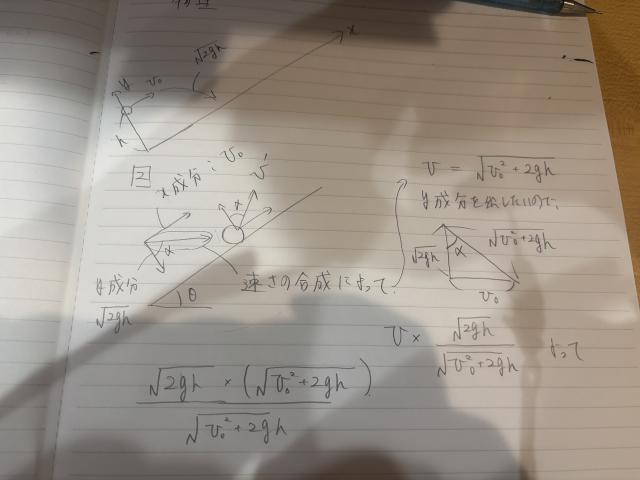 物理
x
y
v₀
√2gh
h
図
x成分：v₀
v'
α
α
y成分
√2gh
θ
速さの合成によって、
v = √v₀²+2gh
y成分を出したいので、
√2gh
α
√v₀²+2gh
v₀
v × √2gh / √v₀²+2gh よって
√2gh × (√v₀²+2gh) / √v₀²+2gh